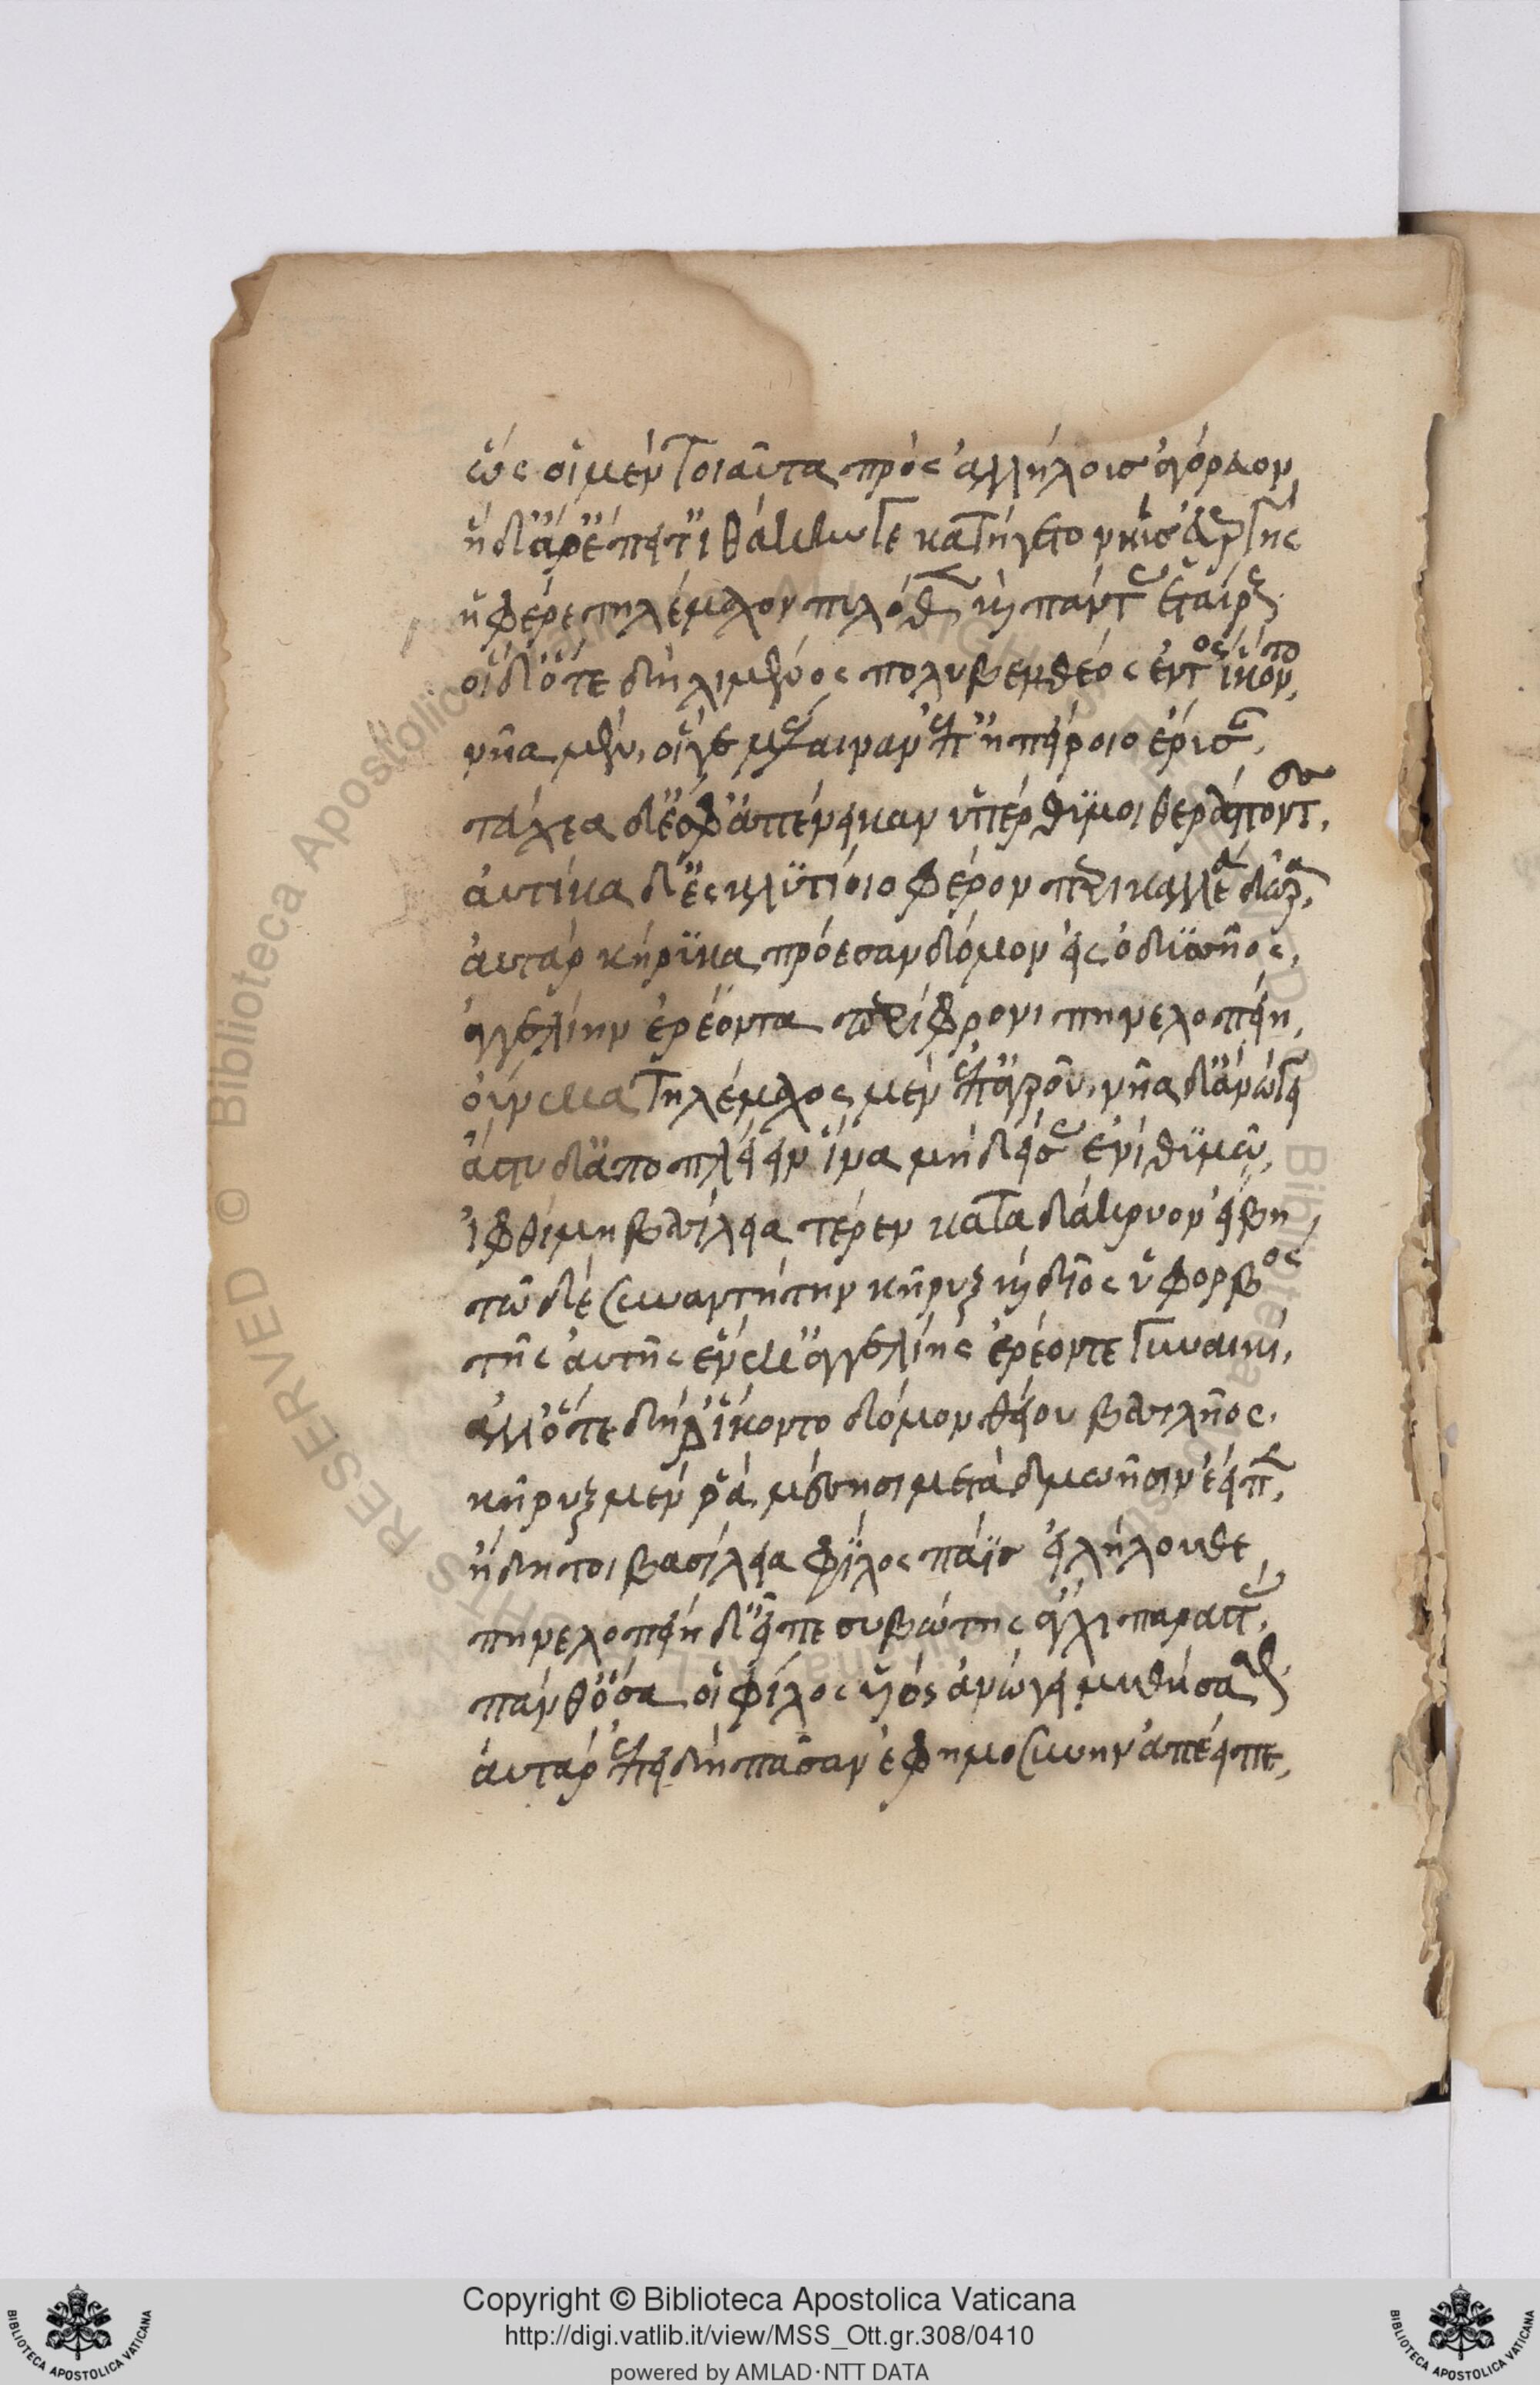 ὣς οἱ μὲν τοιαῦτα πρὸς ἀλλήλοισ ἀγόρευον,
ἡ δ' ἄρ' ἔπειτ' ἰθάκηνδε κατήγετο νηῦσ
ἣ φέρε τηλέμαχον πυλόθεν καὶ πάντας ἑταίρους.
οἱ δ' ὅτε δὴ λιμένος πολυβενθέος ἐντὸς ἵκοντο,
νῆα μὲν, οἵγε μέλαιναν ἐπ' ἠπείροιο ἔρυσαν,
τεύχεα δέ σφ' ἀπένεικαν ὑπέρθϋμοι θεράποντες,
ἀυτίκα δ' ἐς κλϋτίοιο φέρον περικαλλέα δῶρα,
ἀυτὰρ κήρϋκα πρόεσαν δόμον εἰς ὀδϋσῆος,
ἀγγελίην ἐρέοντα περίφρονι πηνελοπείη,
οὕνεκα τηλέμαχος μὲν ἐπ' ἀγροῦ, νῆα δ' ἀνώγει
ἄστυ δ' ἀποπλείειν ἵνα μὴ δείσασ' ἐνὶ θϋμῶ,
ἰφθίμη βασίλεια τέρεν κατὰ δάκρυον εἴβη,
τὼ δὲ συναντήτην κῆρυξ καὶ δῖος ὑφορβὸς
τῆς ἀυτῆς ἕνεκ' ἀγγελίης ἐρέοντε γυναικί,
ἀλλ' ὅτε δή ῥ' ἵκοντο δόμον θείου βασιλῆος,
κῆρυξ μέν ῥα μέσησι μετὰ δμωῆσιν ἔειπε,
ἤδη τοι βασίλεια φΐλος πάϊσ εἰλήλουθε,
πηνελοπείη δ' εἶπε συβώτης ἄγχι παραστὰς,
πάνθ' ὅσα οἱ φίλος υἱὸς ἀνώγει μυθήσασθαι
ἀυτὰρ ἐπειδὴ πᾶσαν ἐφημοσύνην ἀπέειπε,
Copyright © Biblioteca Apostolica Vaticana
http://digi.vatlib.it/view/MSS_Ott.gr.308/0410
powered by AMLAD·NTT DATA